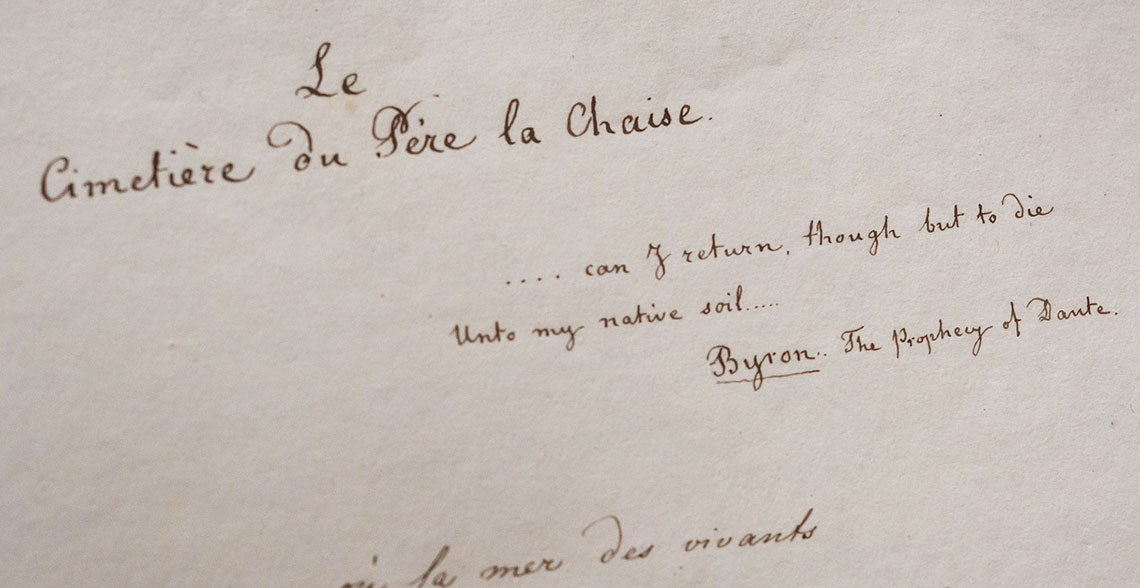 Le
Cimetière du Père la Chaise.
.... can I return, though but to die
Unto my native soil.....
Byron.. The prophecy of Dante.
où la mer des vivants